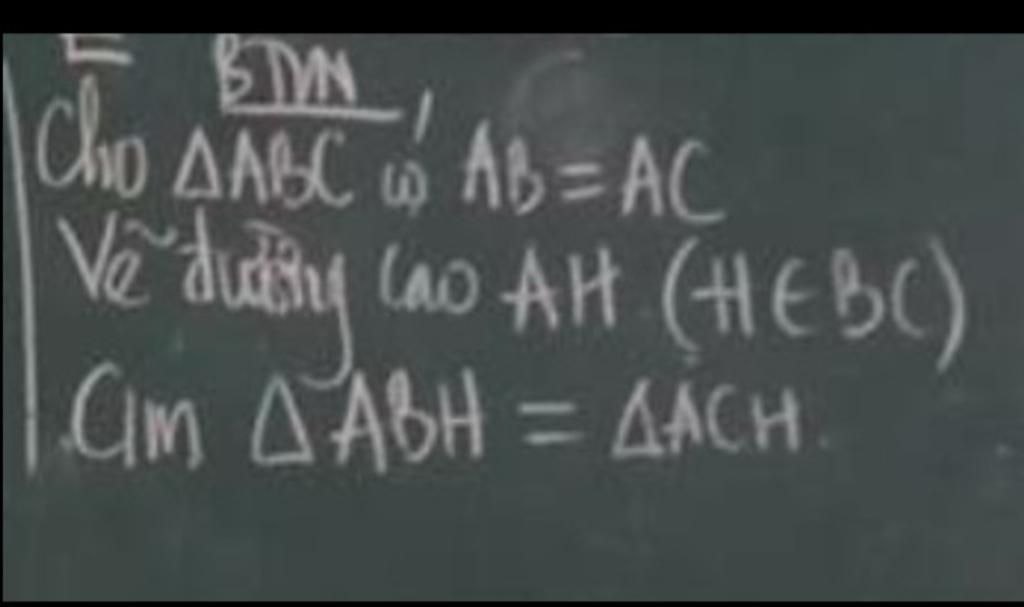 BTVN
Cho ΔABC có AB = AC
Vẽ đường cao AH (H ∈ BC)
Cm ΔABH = ΔACH.